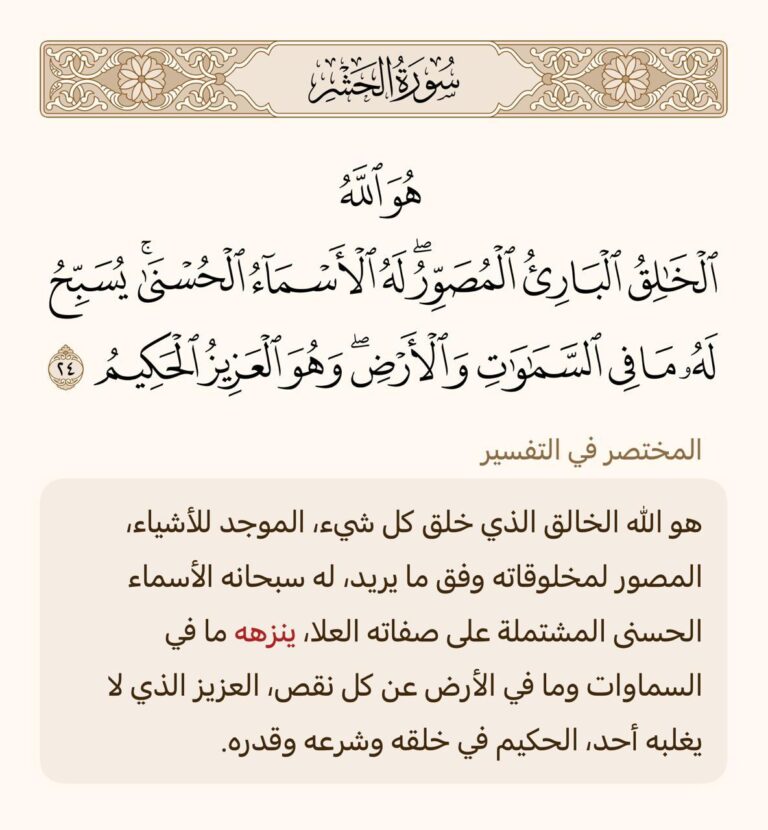 سُورَةُ الحَشْرِ
هُوَ ٱللَّهُ
ٱلْخَٰلِقُ ٱلْبَارِئُ ٱلْمُصَوِّرُۖ لَهُ ٱلْأَسْمَآءُ ٱلْحُسْنَىٰۚ يُسَبِّحُ
لَهُۥ مَا فِي ٱلسَّمَٰوَٰتِ وَٱلْأَرْضِۖ وَهُوَ ٱلْعَزِيزُ ٱلْحَكِيمُ ٢٤
المختصر في التفسير
هو الله الخالق الذي خلق كل شيء، الموجد للأشياء،
المصور لمخلوقاته وفق ما يريد، له سبحانه الأسماء
الحسنى المشتملة على صفاته العلا، ينزهه ما في
السماوات وما في الأرض عن كل نقص، العزيز الذي لا
يغلبه أحد، الحكيم في خلقه وشرعه وقدره.